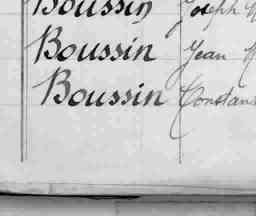 Boussin Joseph
Boussin Jean
Boussin Constan